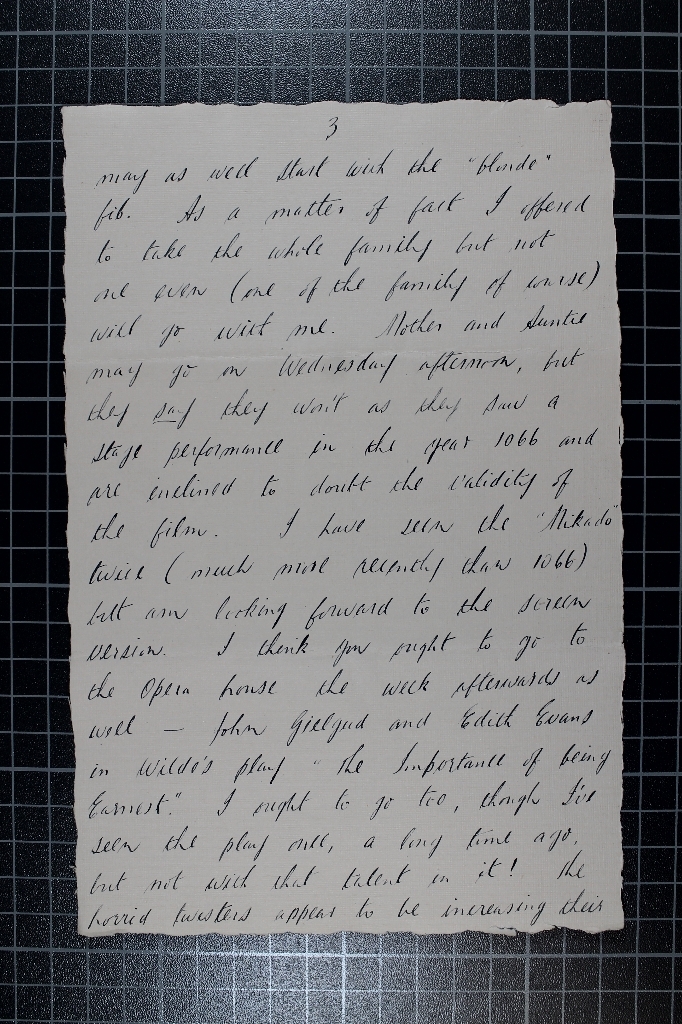 3
may as well start with the "blonde"
fib. As a matter of fact I offered
to take the whole family but not
one even (one of the family of course)
will go with me. Mother and Auntie
may go on Wednesday afternoon, but
they say they won't as they saw a
stage performance in the year 1066 and
are inclined to doubt the validity of
the film. I have seen the "Mikado"
twice (much more recently than 1066)
but am looking forward to the screen
version. I think you ought to go to
the Opera house the week afterwards as
well — John Gielgud and Edith Evans
in Wilde's play "the Importance of being
Earnest." I ought to go too, though I've
seen the play once, a long time ago,
but not with that talent in it! The
horrid twisters appear to be increasing their